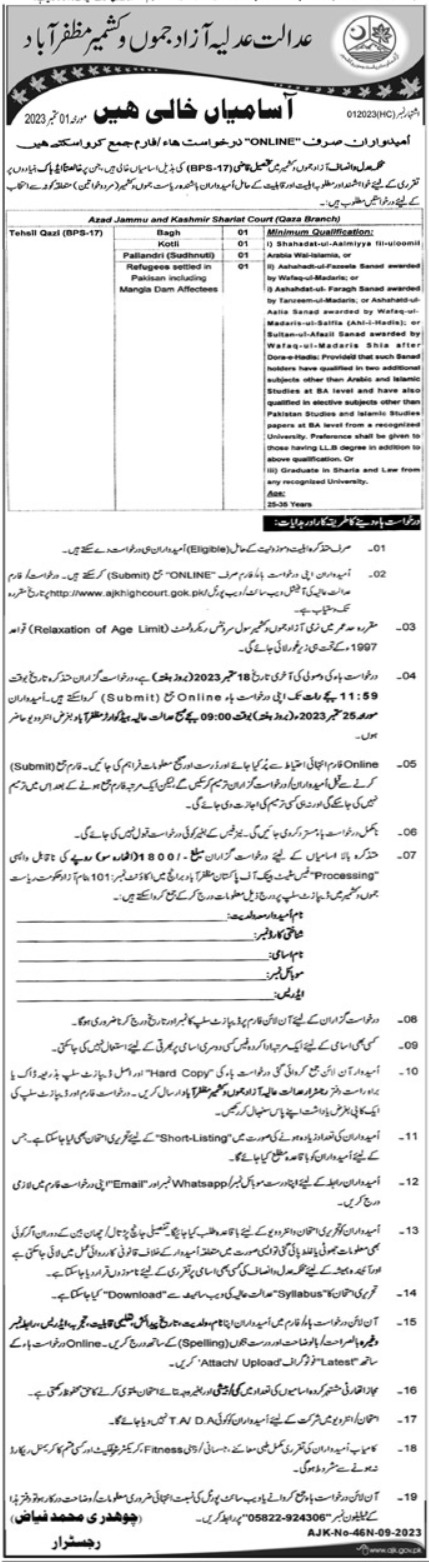 عدالت عدلیہ آزاد جموں و کشمیر مظفر آباد
اشتہار نمبر (HC) 012023
آسامیاں خالی ہیں
مورخہ 01 ستمبر 2023
اُمیدواران صرف "ONLINE" درخواست ھاء/فارم جمع کروا سکتے ھیں
محکمہ عدل وانصاف آزاد جموں وکشمیر میں تحصیل قاضی (BPS-17) کی بذیل آسامیاں خالی ہیں، جن پر خالصتاً ایڈہاک بنیادوں پر
تقرری کے لیئے خواہشمند اور مطلوبہ اہلیت و قابلیت کے حامل اُمیدواران باشندہ ریاست جموں وکشمیر (مردوخواتین) متعلقہ کوٹہ سے انتخاب
کے لیئے درخواستیں مطلوب ہیں:۔
Azad Jammu and Kashmir Shariat Court (Qaza Branch)
Tehsil Qazi (BPS-17)
Bagh 01
Kotli 01
Pallandri (Sudhnuti) 01
Refugees settled in 01
Pakisan including
Mangla Dam Affectees
Minimum Qualification:
i) Shahadat-ul-Aalmiyya fil-uloomil
Arabia Wal-Islamia, or
ii) Ashahadt-ul-Fazeela Sanad awarded
by Wafaq-ul-Madaris; or
i) Ashahdat-ul- Faragh Sanad awarded
by Tanzeem-ul-Madaris; or Ashahald-ul-
Aalia Sanad awarded by Wafaq-ul-
Madaris-ul-Salfia (Ahl-i-Hadis); or
Sultan-ul-Afazil Sanad awarded by
Wafaq-ul-Madaris Shia after
Dora-e-Hadis: Provided that such Sanad
holders have qualified in two additional
subjects other than Arabic and Islamic
Studies at BA level and have also
qualified in elective subjects other than
Pakistan Studies and Islamic Studies
papers at BA level from a recognized
University. Preference shall be given to
those having LL.B degree in addition to
above qualification. Or
iii) Graduate in Sharia and Law from
any recognized University.
Age:
25-35 Years
درخواست ہاء دینے کا طریقہ کار اور ہدایات:
01۔ صرف متذکرہ اہلیت و موزونیت کے حامل (Eligible) اُمیدواران ہی درخواست دے سکتے ہیں۔
02۔ اُمیدواران اپنی درخواست ہاء/فارم صرف "ONLINE" جمع (Submit) کر سکتے ہیں۔ درخواست/فارم
عدالت عالیہ کی آفیشل ویب سائٹ/ویب پورٹل http://www.ajkhighcourt.gok.pk/ پر تاریخ مقررہ
تک دستیاب ہے۔
03۔ مقررہ حد عمر میں نرمی آزاد جموں وکشمیر سول سروسی ریکروٹمنٹ (Relaxation of Age Limit) قواعد
1997ء کے تحت ہی زیر غور لائی جائے گی۔
04۔ درخواست ہاء کی وصولی کی آخری تاریخ 18 ستمبر 2023 (بروز ہفتہ) ہے، درخواست گزاران متذکرہ تاریخ بوقت
11:59 بجے رات تک اپنی درخواست ہاء Online جمع (Submit) کروا سکتے ہیں۔ اُمیدواران
مورخہ 25 ستمبر 2023ء (بروز ہفتہ) بوقت 09:00 بجے صبح عدالت عالیہ ہیڈکوارٹر مظفرآباد بغرض انٹرویو حاضر
ہوں۔
05۔ Online فارم انتہائی احتیاط سے پُر کیا جائے اور درست اور صحیح معلومات فراہم کی جائیں۔ فارم جمع (Submit)
کرنے سے قبل اُمیدواران/درخواست گزاران ترمیم کر سکیں گے، لیکن ایک مرتبہ فارم جمع ہونے کے بعد اس میں ترمیم
نہیں کی جا سکے گی اور نہ ہی کسی ترمیم کی اجازت دی جائے گی۔
06۔ نامکمل درخواست ہاء مسترد کر دی جائیں گی۔ نیز فیس کے بغیر کوئی درخواست قبول نہیں کی جائے گی۔
07۔ متذکرہ بالا اسامیاں کے لیئے درخواست گزاران مبلغ -/1800 (اٹھارہ سو) روپے کی ناقابل واپسی
"Processing" فیس سٹیٹ بینک آف پاکستان مظفرآباد برانچ میں اکاؤنٹ نمبر: 101 بنام آزاد حکومت ریاست
جموں وکشمیر میں ڈیپازٹ سلپ پر درج ذیل معلومات درج کر کے جمع کروا سکتے ہیں:۔
نام اُمیدوار معہ ولدیت:
شناختی کارڈ نمبر:
نام اسامی:
موبائل نمبر:
ایڈریس:
08۔ درخواست گزاران کے لیئے آن لائن فارم پر ڈیپازٹ سلپ کا نمبر اور تاریخ درج کرنا ضروری ہو گا۔
09۔ کسی بھی اسامی کے لیئے ایک مرتبہ ادا کردہ فیس کسی دوسری اسامی پر بھرتی کے لیئے استعمال نہیں کی جا سکتی۔
10۔ اُمیدوار آن لائن جمع کروائی گئی درخواست ہاء کی "Hard Copy" اور اصل ڈیپازٹ سلپ بذریعہ ڈاک یا
براہ راست دفتر رجسٹرار عدالت عالیہ آزاد جموں وکشمیر مظفرآباد ارسال کریں۔ درخواست فارم اور ڈیپازٹ سلپ کی
ایک کاپی بغرض یادداشت اپنے پاس سنبھال کر رکھیں۔
11۔ اُمیدواران کی تعداد زیادہ ہونے کی صورت میں "Short-Listing" کے لیئے تحریری امتحان بھی لیا جا سکتا ہے۔ جس
کے لیئے اُمیدواران کو باقاعدہ مطلع کیا جائے گا۔
12۔ اُمیدواران رابطہ کے لیئے اپنا درست موبائل نمبر/Whatsapp نمبر اور "Email" اپنی درخواست فارم میں لازمی
درج کریں۔
13۔ اُمیدواران کو تحریری امتحان و انٹرویو کے لیئے باقاعدہ طلب کیا جائیگا۔ تفصیلی جانچ پڑتال/چھان بین کے دوران اگر کوئی
بھی معلومات جھوٹی یا غلط پائی گئی تو ایسی صورت میں متعلقہ اُمیدوار کے خلاف قانونی کارروائی عمل میں لائی جا سکتی ہے
اور آئیندہ ہمیشہ کے لیئے محکمہ عدل وانصاف کی کسی بھی اسامی پر تقرری کے لیئے ناموزوں قرار دیا جا سکتا ہے۔
14۔ تحریری امتحان کا "Syllabus" عدالت عالیہ کی ویب سائیٹ سے "Download" کیا جا سکتا ہے۔
15۔ آن لائن درخواست ہاء/فارم میں اُمیدواران اپنا نام، ولدیت، تاریخ پیدائش، تعلیمی قابلیت، تجربہ، ایڈریس، رابطہ نمبر
وغیرہ بالصراحت/بالوضاحت اور درست ہجوں (Spelling) کے ساتھ درج کریں۔ Online درخواست ہاء کے
ساتھ "Latest" فوٹوگراف "Attach/ Upload" کریں۔
16۔ مجاز اتھارٹی مشتہر کردہ اسامیوں کی تعداد میں کمی/بیشی اور بغیر وجہ بتائے امتحان ملتوی کرنے کا حق محفوظ رکھتی ہے۔
17۔ امتحان/انٹرویو میں شرکت کے لیئے اُمیدواران کو کوئی T.A/ D.A نہیں دیا جائے گا۔
18۔ کامیاب اُمیدواران کی تقرری مکمل طبی معائنے، جسمانی/ذہنی Fitness، کریکٹر سرٹیفکیٹ اور کسی قسم کا کریمنل ریکارڈ
نہ ہونے سے مشروط ہو گی۔
19۔ آن لائن درخواست ہاء جمع کروانے یا ویب سائٹ پورٹل کی نسبت انتہائی ضروری معلومات/وضاحت درکار ہو تو دفتر ہذا
کے ٹیلیفون نمبر "05822-924306" پر رابطہ کریں۔
(چوھدری محمد فیاض)
رجسٹرار
AJK-No-46N-09-2023
www.ajk.gov.pk